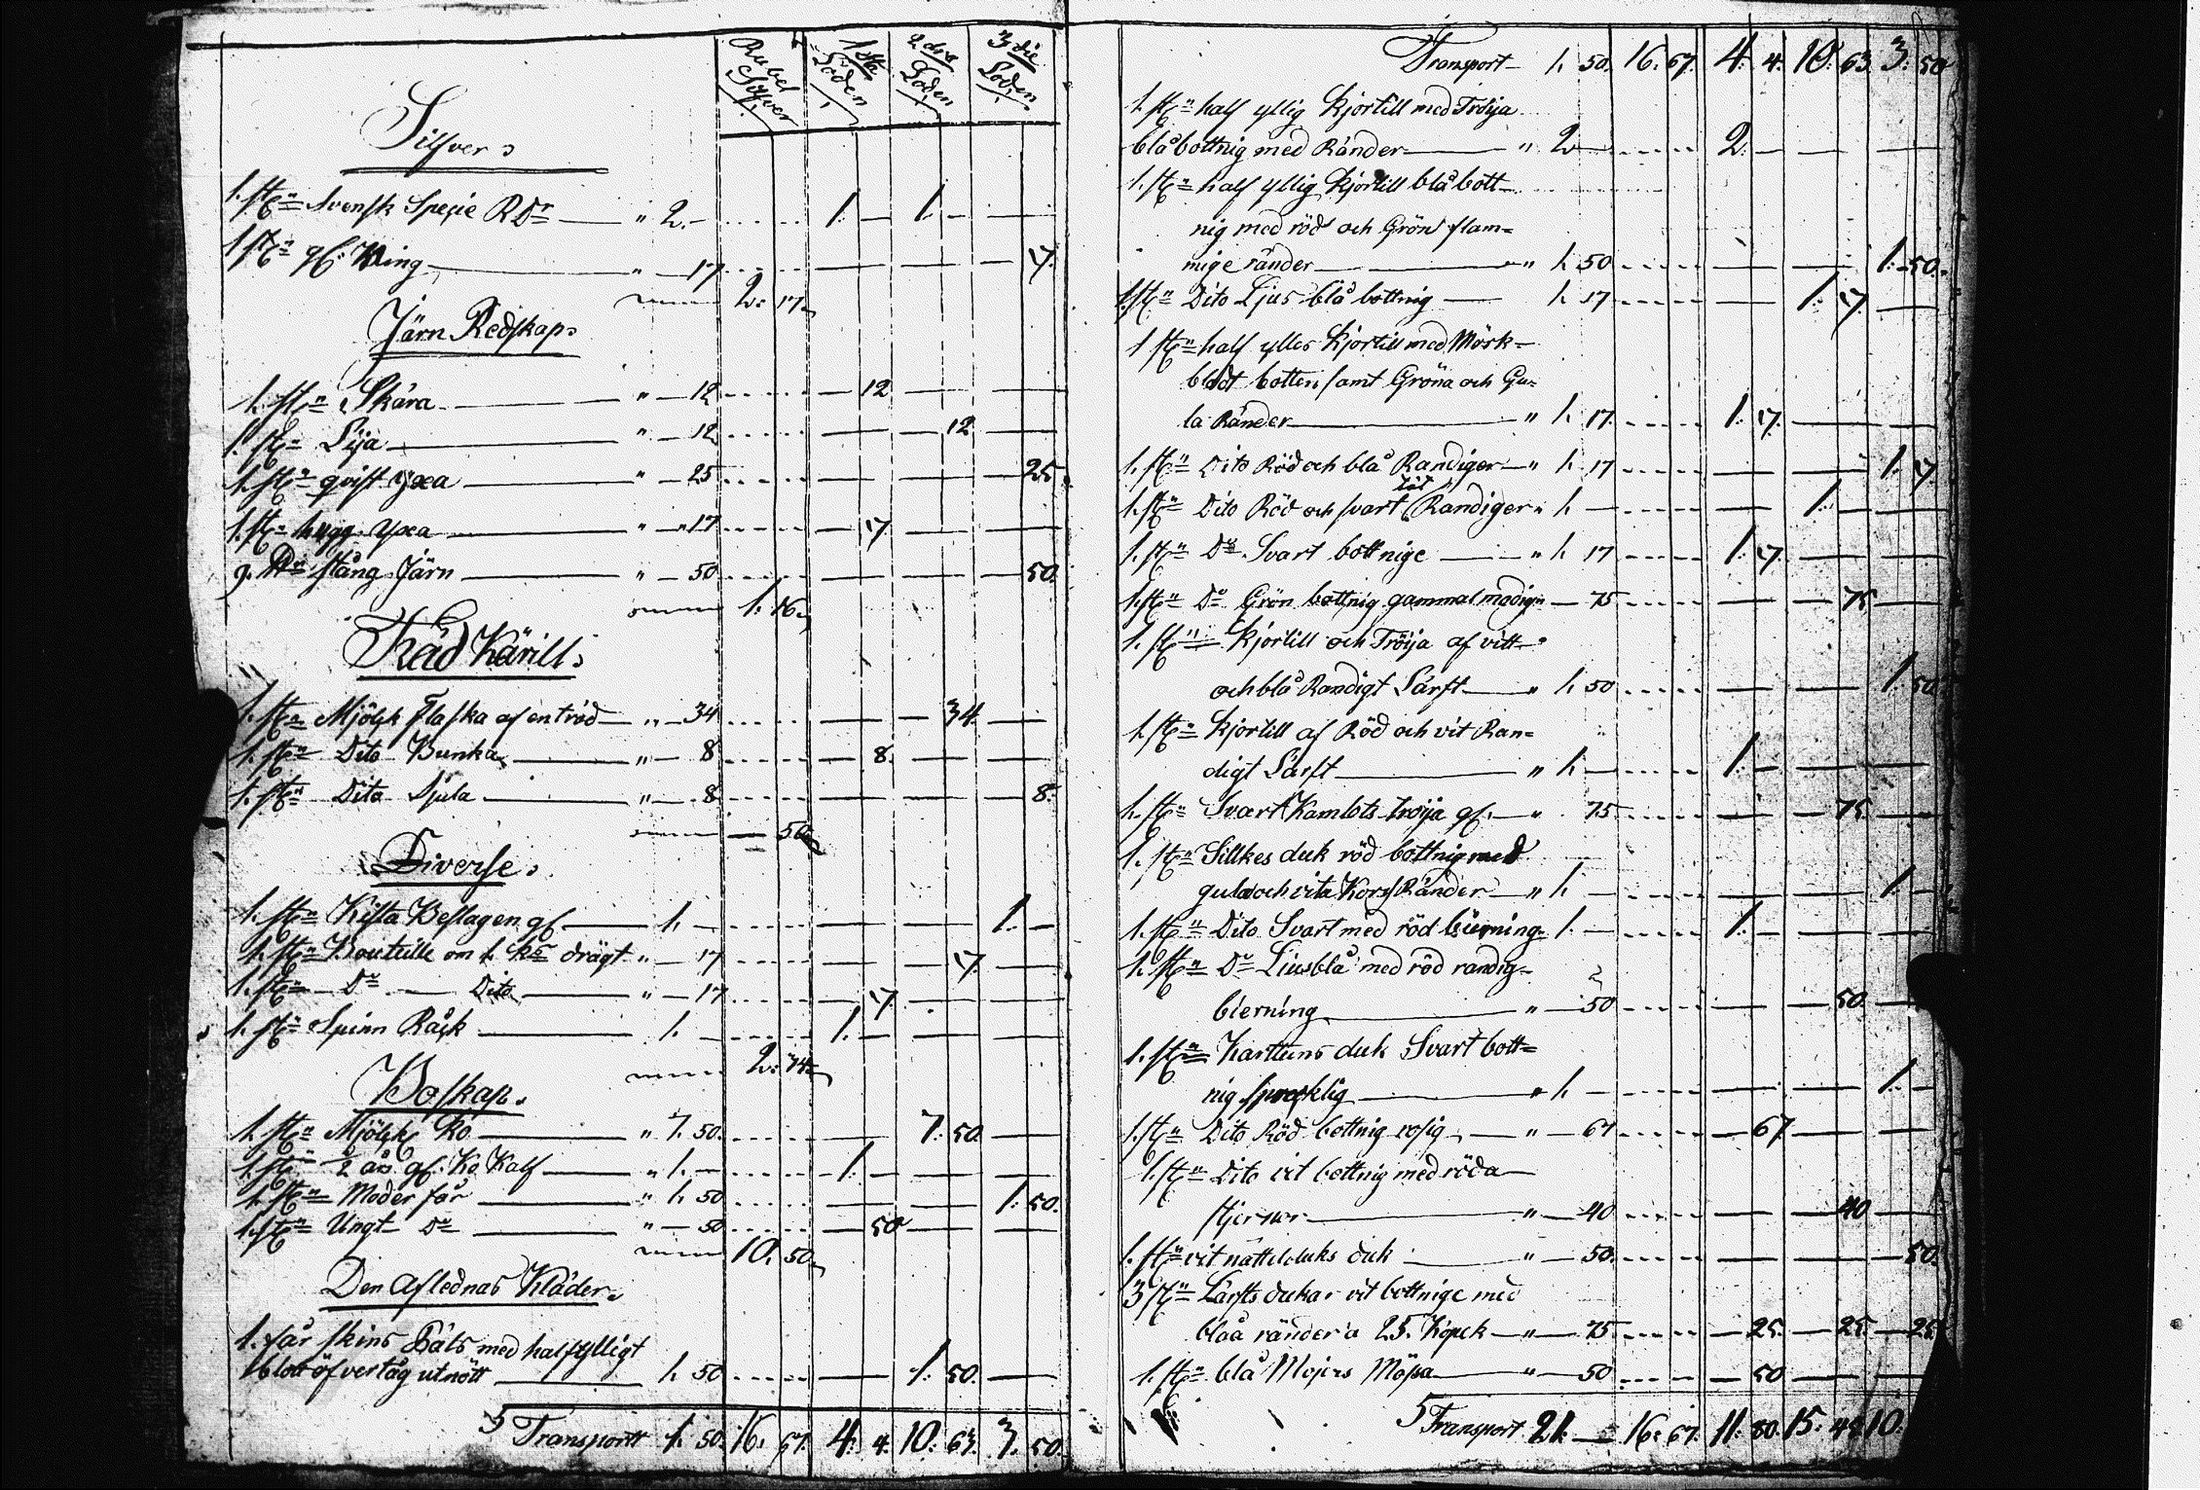 Rubel Silfver 1sta Loden 2dra Loden 3die Loden
Silfver.
1. st: Svensk Specie RDr " 2. — 1. — 1. —
1 st: gl. Ring " — 17 — — — 17.
2. 17.
Järn Redskap.
1. st: Skära " — 12 — 12 — —
1. st: Lija " — 12 — — 12 —
1. st: qvist yxa " — 25 — — — 25.
1. st: hugg yxa " — 17 — 17. — —
9. stång Järn " — 50 — — — 50.
1. 16.
Träd Kärill.
1. st: Mjölk Flaska af en träd " — 34 — — 34. —
1. st: Dito Bunka " — 8 — 8. — —
1. st: Dito " — 8 — — — 8.
— 50
Diverse.
1. st: Kista Beslagen gl. 1. — — — 1. —
1. st: Bouteille om 1. drägt " — 17 — — 17. —
1. st: Do Dito " — 17 — 17. — —
1. st: Spinn Råck 1. — 1. — — —
2. 74.
Boskap.
1. st: Mjölk Ko " 7. 50. — 7. 50. —
1. st: 1/2 års gl. Ko Kalf " 1. — 1. — — —
1. st: Moder får " 1. 50 — — 1. 50.
1. st: Ungt Do " — 50 — 50 — —
10. 50.
Den Aflednas Kläder.
1. får skins Päls med halfylligt
blått öfvertåg utnött 1. 50 — 1. 50. —
Transport 1. 50. 16. 67. 4. 4. 10. 63. 3. 50.
Transport 1. 50. 16. 67. 4. 4. 10. 63. 3. 50
1. st: half yllig kjortill med Tröija
blåbottnig med Ränder " 2 — 2. — — —
1. st: half yllig kjortill blåbott-
nig med röd och Grön flam=
mige ränder " 1. 50 — — 1. 50.
1. st: Dito Ljus blå bottnig 1. 17 — 1. 17. —
1 st: half ylles kjortill med Mörk-
blått botten samt Gröna och Gu=
la Ränder " 1. 17. 1. 17. — —
1. st: Dito Röd och blå Randiger " 1. 17 — — 1. 17.
1. st: Dito Röd och svart Randiger " 1. — — 1. —
1. st: Do Svart bottnige " 1. 17 1. 17. — —
1. st: Do Grön bottnig gammalmodig " — 75 — — 75 —
1. st: Kjortill och Tröija af vitt
och blå Randigt Lärft " 1. 50 — — 1. 50.
1. st: kjortill af Röd och vit Ran=
digt Lärft " 1. — 1. — — —
1. st: Svart Kamlots tröija gl. " 75 — — 75. —
1. st: Sillkes duk röd bottnig med
gula och vita Kors Ränder " 1. — — — 1. —
1. st: Dito Svart med röd bierning 1. — 1. — — —
1. st: Do Liusblå med röd randig
bierning " — 50 — — 50. —
1. st: Kartuns duk Svart bott=
nig sprecklig " 1. — — — 1. —
1. st: Dito Röd bottnig rosig " — 67 — 67. — —
1. st: Dito vit bottnig med röda
stjernor " — 40 — — 40 —
1. st: vit nättelduks duk " — 50. — — — 50.
3 st: Lärfts dukar vit bottnige med
blåa ränder a 25. Kopek " — 75. — 25. — 25. — 25
1. st: blå Mössa " — 50 — 50 — —
Transport 21. — 16. 67. 11. 80. 15. 10.